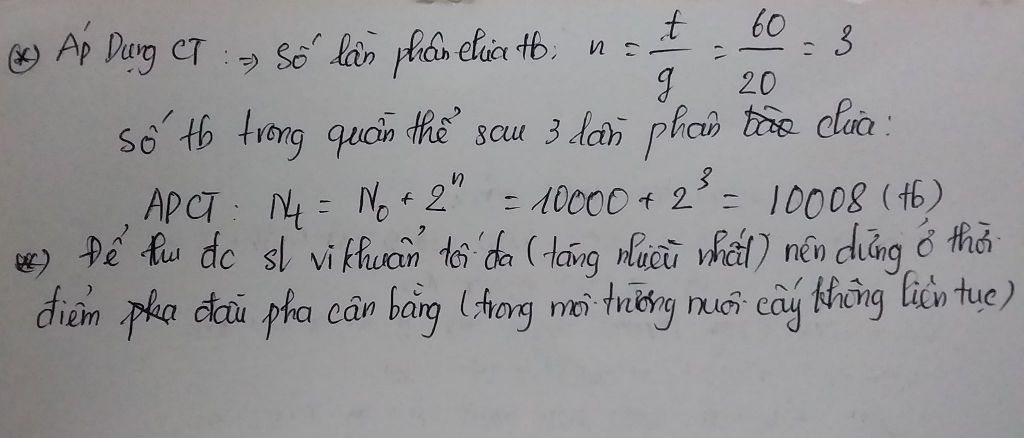 (*) Áp Dụng CT : => Số lần phân chia tb: n = t/g = 60/20 = 3
số tb trong quần thể sau 3 lần phân bào chia :
APCT : Nt = N₀ + 2ⁿ = 10000 + 2³ = 10008 (tb)
(*) Để thu đc sl vi khuẩn tối đa (tăng nhiều nhất) nên dừng ở thời
điểm pha đầu pha cân bằng (trong môi trường nuôi cấy không liên tục)